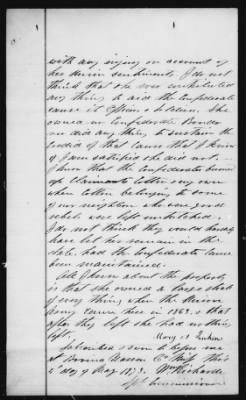 with any injury on account of
her Union sentiments. I do not
think that she ever contributed
any thing to aid the Confederate
cause it Officers or Soldiers. She
owned no Confederate Bonds
nor did any thing to sustain the
credit of that cause that I know
of I am satisfied she did not.
I know that the Confederates burned
up Claimants cotton my own
when cotton belonging to some
of our neighbors who were good
rebels were left untouched.
I do not think they would
have let her remain in the
state, had the Confederate cause
been maintained.
All I know about the property
is that she owned a large stock
of every thing, when the Union
Army came here in 1863, & that
after they left she had nothing
left.
Subscribed & sworn to before me
at Bovina Warren Co Miss this
day of May 1873. Wm
Spl Commissioner